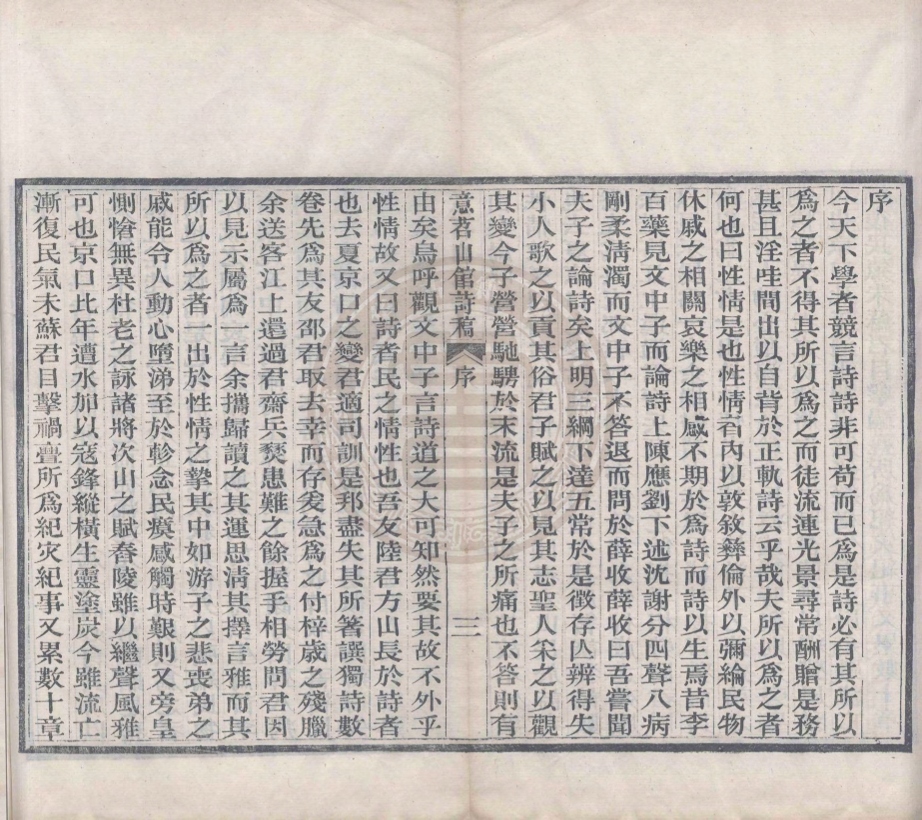 序
今天下學者競言詩詩非可苟而已爲是詩必有其所以
爲之者不得其所以爲之而徒流連光景尋常酬贈是務
甚且淫哇間出以自背於正軌詩云乎哉夫所以爲之者
何也曰性情是也性情有內以敦敘彝倫外以彌綸民物
休戚之相關哀樂之相感不期於爲詩而詩以生焉昔李
百藥見文中子而論詩上陳應劉下述沈謝分四聲八病
剛柔淸濁而文中子不答退而問於薛收薛收曰吾嘗聞
夫子之論詩矣上明三綱下達五常於是徵存亾辨得失
小人歌之以貢其俗君子賦之以見其志聖人采之以觀
其變今子營營馳騁於末流是夫子之所痛也不答則有
意苕山館詩稿 序 三
由矣烏呼觀文中子言詩道之大可知然要其故不外乎
性情故又曰詩者民之情性也吾友陸君方山長於詩者
也去夏京口之變君適司訓是邦盡失其所箸譔獨詩數
卷先爲其友邵君取去幸而存爰急爲之付梓歲之殘臘
余送客江上還過君齋兵燹患難之餘握手相勞問君因
以見示屬爲一言余攜歸讀之其運思淸其擇言雅而其
所以爲之者一出於性情之摯其中如游子之悲喪弟之
戚能令人動心墮涕至於軫念民瘼感觸時艱則又旁皇
惻愴無異杜老之詠諸將次山之賦舂陵雖以繼聲風雅
可也京口比年遭水加以寇鋒縱橫生靈塗炭今雖流亡
漸復民氣未蘇君目擊禍亹所爲紀灾紀事又累數十章